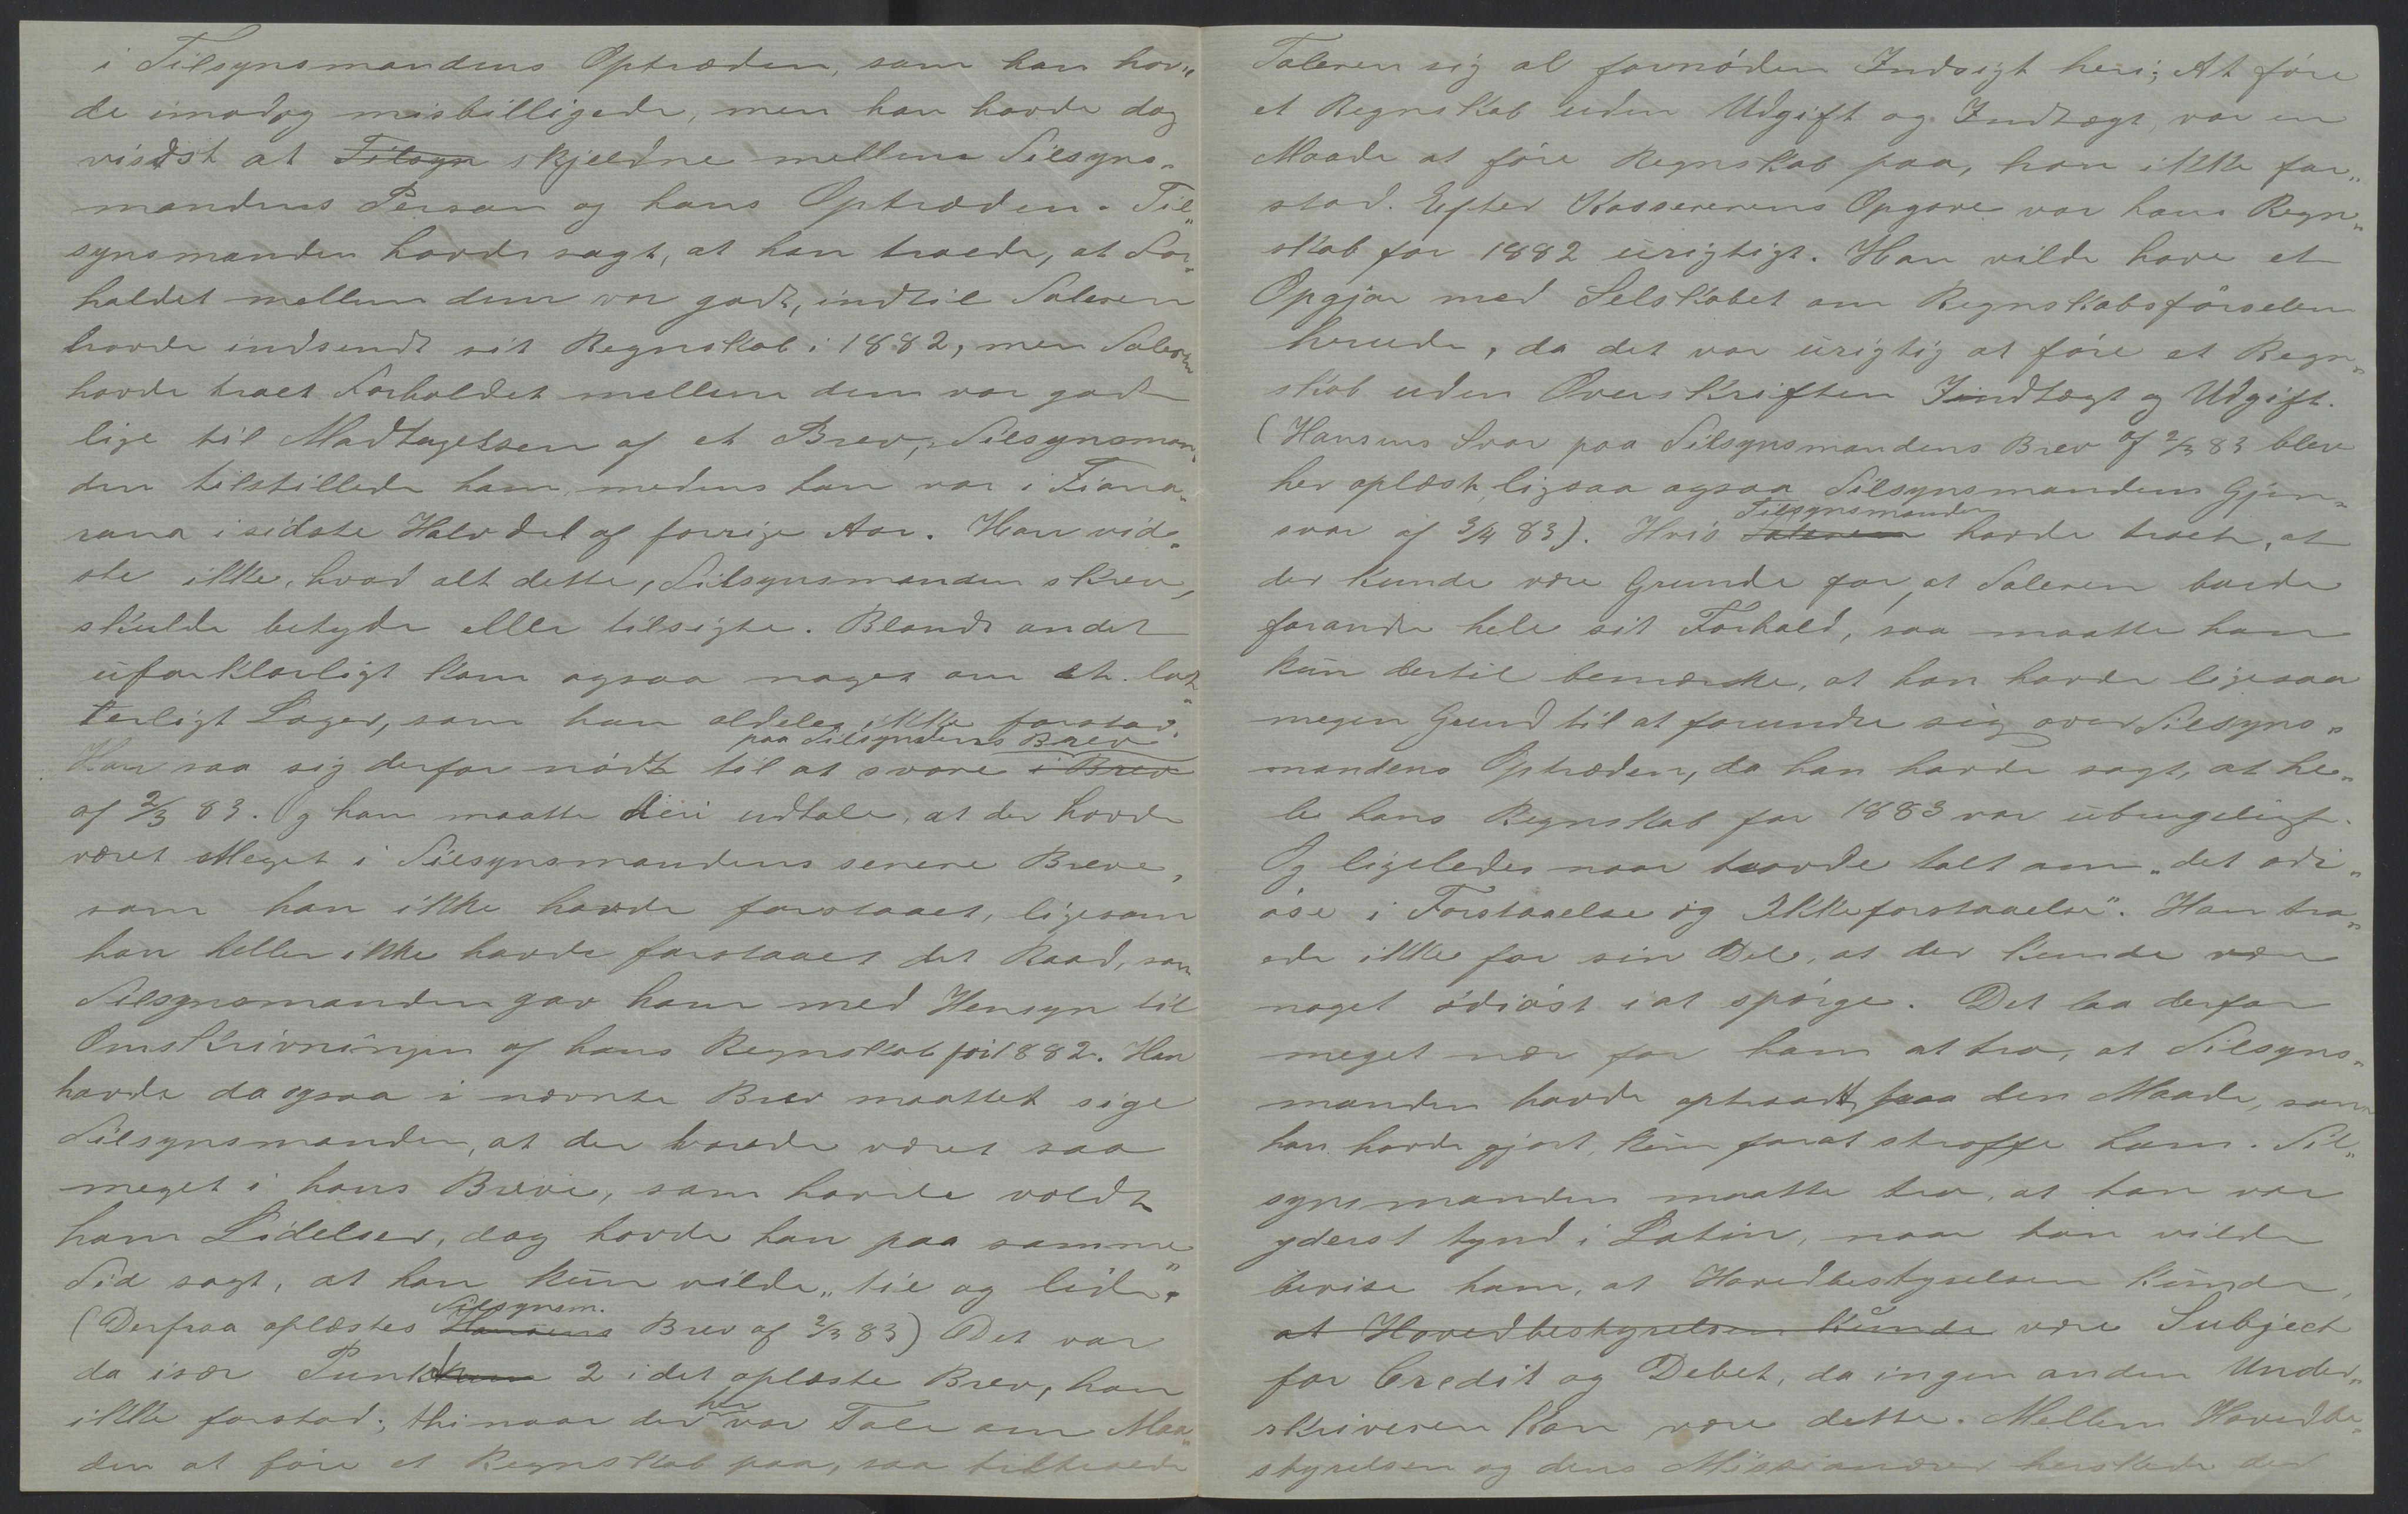 i Tilsynsmandens Optræden, som han hav„
de imod og misbilligede, men han havde dog
vidst at Tilsyn skjeldne mellem Tilsyns„
mandens Person og hans Optræden. Til„
synsmanden havde sagt, at han troede, at For„
holdet mellem dem var godt, indtil Taleren
havde indsendt sit Regnskab i 1882, men Taleren
havde troet Forholdet mellem dem var godt
lige til Modtagelsen af et Brev, Tilsynsman„
den tilstillede ham, medens han var i Fiana„
rana i sidste Halvdel af forrige Aar. Han vid„
ste ikke, hvad alt dette, Tilsynsmanden skrev,
skulde betyde eller tilsigte. Blandt andet
uforklarligt kom ogsaa noget om et lat„
terligt Lager, som han aldeles ikke forstod.
paa Tilsyndens Brev
Han saa sig derfor nødt til at svare i Brev
af 2/3 83. Og han maatte deri udtale, at der havde
været Meget i Tilsynsmandens senere Breve,
som han ikke havde forstaaet, ligesom
han heller ikke havde forstaaet det Raad, som
Tilsynsmanden gav ham med Hensyn til
Omskrivningen af hans Regnskab for 1882. Han
havde da ogsaa i nævnte Brev maattet sige
Tilsynsmanden, at der havde været saa
meget i hans Breve, som havde voldt
ham Lidelser, dog havde han paa samme
Tid sagt, at han kun vilde „tie og lide„.
Tilsynsm.
(Derfraa oplæstes Hansens Brev af 2/3 83) Det var
da især Punkt 2 i det oplæste Brev, han
her
ikke forstod; thi naar der var Tale om Maa„
den at føre et Regnskab paa, saa tiltroede
Taleren sig al fornøden Indsigt heri; At føre
et Regnskab uden Udgift og Indtægt, var en
Maade at føre Regnskab paa, han ikke for„
stod. Efter Kassererens Opgave var hans Regn„
skab for 1882 urigtigt. Han vilde have et
Opgjør med Selskabet om Regnskabsførselen
herude, da det var urigtig at føre et Regn„
skab uden Overskriften Indtægt og Udgift.
(Hansens Svar paa Tilsynsmandens Brev af 2/3 83 blev
her oplæst, ligsaa ogsaa Tilsynsmandens Gjen„
Tilsynsmanden
svar af 3/4 83). Hvis Taleren havde troet, at
der kunde være Grunde for, at Taleren burde
forandre hele sit Forhold, saa maatte han
kun dertil bemærke, at han havde ligesaa
megen Grund til at forundre sig over Tilsyns„
mandens Optræden, da han havde sagt, at he„
le hans Regnskab for 1883 var ubrugeligt.
Og ligeledes naar havde talt om „det odi„
øse i Forstaaelse og Ikkeforstaaelse". Han tro„
ede ikke for sin Del, at der kunde være
noget odiøst i at spørge. Det laa derfor
meget nær for ham at tro, at Tilsyns„
manden havde optraadt paa den Maade, som
han havde gjort, kun forat straffe ham. Til„
synsmanden maatte tro, at han var
yderst tynd i Latin, naar han vilde
bevise ham, at Hovedbestyrelsen kunde,
at Hovedbestyrelsen kunde være Subject
for Credit og Debet, da ingen anden Under„
skriveren kan være dette. Mellem Hovedbe„
styrelsen og dens Missionærer herskede der